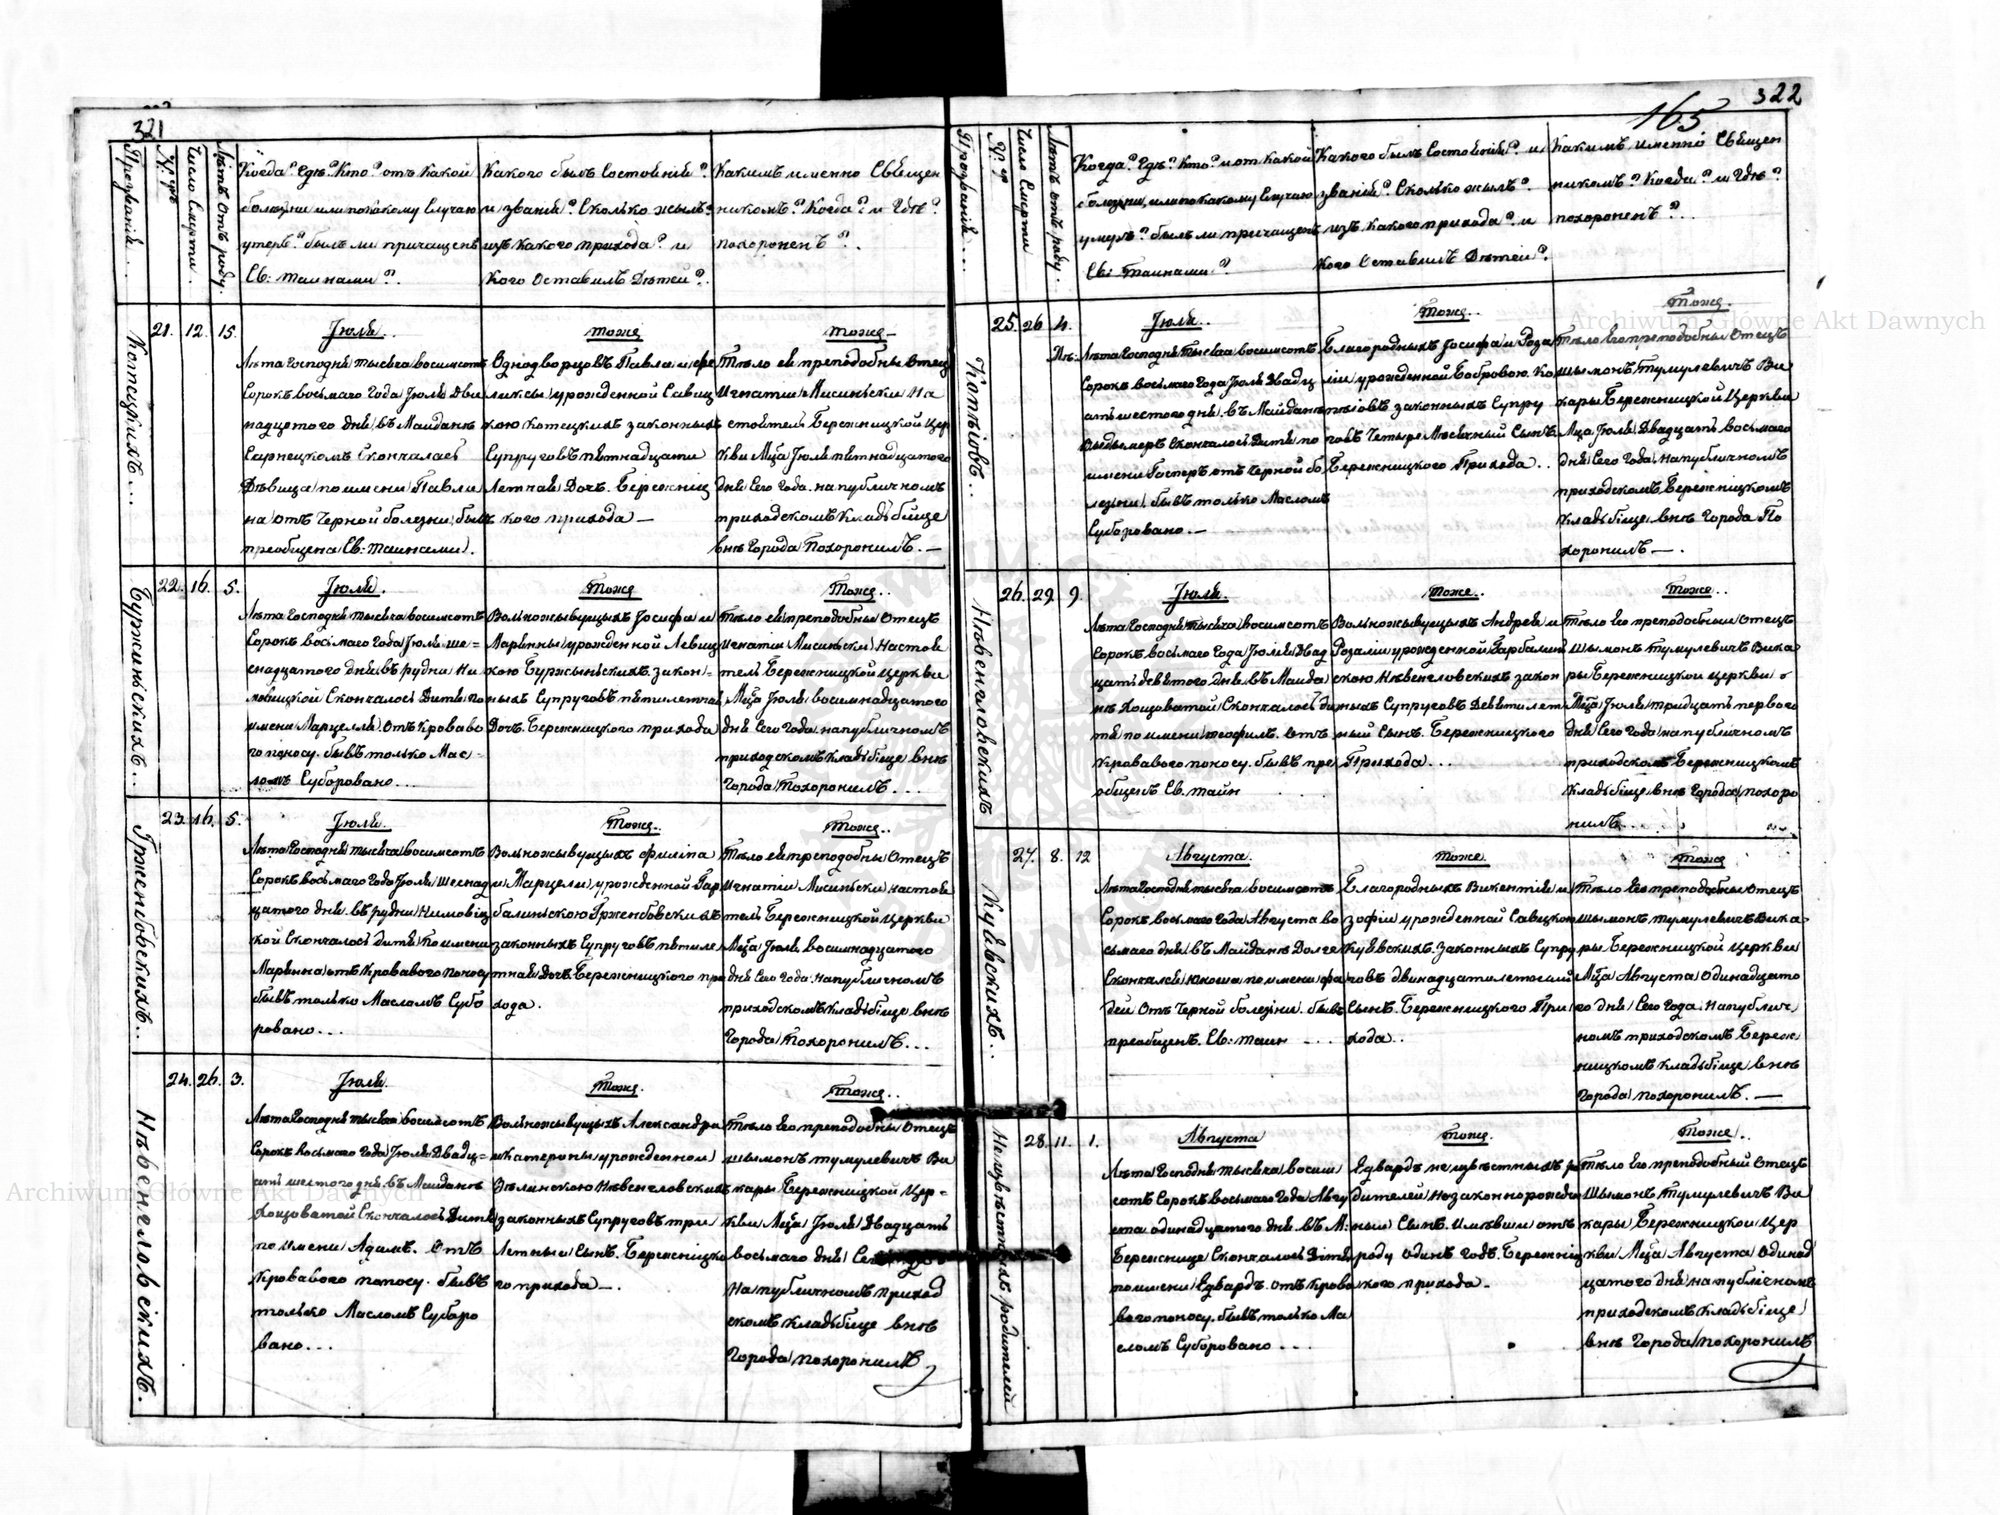 321
Прозваніе...
N.гръ
Число Смерти
Лѣтъ отъ роду.
Когда? Гдѣ? Кто? отъ Какой
болезни или по какому Случаю
утеръ? былъ ли причащенъ
Св: таинами?
Какого былъ Состояній?
и званій? Сколько жылъ?
изъ какого прихода? и
Кого Оставилъ Дѣтей?
Какимъ именно Свящеn
никомъ? Когда? и Гдѣ?
похороненъ?
21. 12. 15.
Июля.
Лѣта Господня тысяча восимсотъ
Сорокъ восьмаго Года Июля Дви
надцатого дня въ Майданѣ
Сарнецкомъ Скончалась
Дѣвица по имени Павли
на отъ Черной болезни, бывъ
преобщена Св: таинами.
Тоже
Однодворцовъ Павла и Фе
ликсы урожденной Савиц
кою Котецкихъ законныхъ
Супруговъ пятнадцати
Летная Дочь. Бережниц
кого прихода —
Тоже
Тѣло ея преподобны Отецъ
Игнатіи Мисиньски На
стоятель Бережницкой Цер
кви Мца Июля пятнадцатого
дня Сего Года. на публичномъ
приходскомъ Кладъбище
внѣ Города Похоронилъ. —
22. 16. 5.
Буржинскихъ...
Июля.
Лѣта Господня тысяча восимсотъ
Сорокъ восьмаго Года Июля ше=
снадцатого дня въ рудни Ни
мовицкой Скончалось Дитя По
имени Марцелля Отъ Кроваво
го поносу. бывъ только Мас=
ломъ Суборовано...
Тоже
Вольножывущыхъ Иосифа и
Марянны урожденной Левиц
кою Буржыньскихъ. закон=
ныхъ Супруговъ пятилетная
Дочь. Бережницкого прихода
Тоже.
Тѣло ея преподобны Отецъ
Игнатіи Мисиньски Настоя
тель Бережницкой церкви
Мца Июля восимнадцатого
дня Сего Года. на публичномъ
приходскомъ Кладъбище внѣ
Города Похоронилъ...
23. 16. 5.
Гржембовскихъ..
Июля.
Лѣта Господня тысяча восимсотъ
Сорокъ восьмаго Года Июля Шеснад
цатого дня. въ рудни Нимовиц
кой Скончалось дитя По имени
Марянна отъ Кровавого Поносу
бывъ только Масломъ Субо
ровано...
Тоже.
Вольножывущыхъ Филипа
и Марцели урожденной Гар
балиньскою Гржембовскихъ
законныхъ Супруговъ пятиле
тная Дочь Бережницкого при
хода.
Тоже.
Тѣло ея преподобны Отецъ
Игнатіи Мисиньски настоя
тель Бережницкой Церкви
Мца Июля восимнадцатого
дня Сего Года. На публичномъ
приходскомъ Кладъбище внѣ
Города Похоронилъ...
24. 26. 3.
Нѣвенгловскихъ.
Июля.
Лѣта Господня тысяча восимсотъ
Сорокъ восьмаго Года Июля Двадц=
ать шестого дня. въ Майданѣ
Хощоватой Скончалось Дитя
по имени Адамъ. Отъ
Кровавого поносу. бывъ
только Масломъ Суборо
вано...
Тоже.
Вольножывущыхъ Александра
и Катерины урожденной
Зѣлинскою Нѣвенгловскихъ
законныхъ Супруговъ три
Летный Сынъ. Бережницко
го прихода —.
Тоже.
Тѣло его преподобны Отецъ
Шымонъ тумулевичъ Ви
кары Бережницкой Цер=
кви Мца Июля Двадцать
восьмаго дня
На публичномъ приход
скомъ кладъбище внѣ
Города похоронилъ
322
165
Прозваній...
N. гр
Число Смерти
Лѣтъ отъ роду.
Когда? Гдѣ? Кто? и отъ какой
болезни, или по какому Случаю
умеръ? былъ ли причащенъ
Св: Таинами?
Какого былъ Состояній? и
званій? Сколько жылъ?
изъ какого прихода? и
Кого Оставилъ Дѣтей?
Какимъ именно Священ
никомъ? Когда? и Гдѣ?
похороненъ?
25. 26. 4.
Июля..
Лѣта Господня Тысяча восимсотъ
Сорокъ восьмаго Года Июля Двадц
ать шестого дня. въ Майданѣ
Скончалось Дитя по
имени Гасперъ отъ Черной бо
лезни. бывъ только Масломъ
Суборовано. —
Тоже..
Благородныхъ Иосифа и Роза
ліи урожденной Бобровою.
законныхъ Супру
говъ Четыре Мѣсячный Сынъ
Бережницкого Прихода..
Тоже.
Тѣло Его преподобны Отецъ
Шымонъ Тумулевичъ Ви
кары Бережницкой Церкви
Мца Июля Двадцать восьмаго
дня Сего Года, на публичномъ
приходскомъ Бережницкомъ
Кладъбище внѣ Города По
хоронилъ —.
26. 29. 9.
Нѣвенгловскихъ
Июля.
Лѣта Господня тысяча восимсотъ
Сорокъ восьмаго Года Июля Двад
цать девятого дня. въ Майда
нѣ Хощоватой Скончалось ди
тя по имени Теофилъ. отъ
Кровавого поносу. бывъ пре
общенъ Св. таин
Тоже.
Вольножывущыхъ Андрея и
Розаліи урожденной Гарбалин
скою Нѣвенгловскихъ закон
ныхъ Супруговъ Девятилет
ный Сынъ. Бережницкого
Прихода...
Тоже..
Тѣло Его преподобныи Отецъ
Шымонъ Тумулевичъ Вика
ры Бережницкой церкви
Мца Июля тридцать первого
дня Сего Года на публичномъ
приходскомъ Бережницкомъ
Кладъбище внѣ Города похоро
нилъ...
27. 8. 12
Куявскихъ..
Августа.
Лѣта Господня тысяча восимсотъ
Сорокъ восьмаго Года Августа во
сьмаго дня въ Майданѣ Долге
Скончался Юноша по имени Фа
дей Отъ Черной болезни. бывъ
преобщенъ. Св: таин ...
Тоже.
Благородныхъ Викентія и
Зофіи урожденной Савицкою
Куявскихъ. Законныхъ Супру
говъ двинадцатилетный
Сынъ. Бережницкого При
хода..
Тоже
Тѣло Его преподобны Отецъ
Шымонъ тумулевичъ Вика
ры Бережницкой церкви
Мца Августа Одинадцато
го дня Сего Года. На публич
номъ приходскомъ Береж
ницкомъ кладъбище внѣ
Города похоронилъ. —
28. 11. 1.
Неизвѣстныхъ родителей
Августа
Лѣта Господня тысяча восим
сотъ Сорокъ восьмаго Года Авгу
ста одинадцатого дня въ М:
Бережнице Скончалось Дитя
по имени Едвардъ. отъ Крова
вого поносу. бывъ только Ма
сломъ Суборовано...
Тоже.
Едвардъ неизвѣстныхъ ро
дителей Незаконнорожден
ный Сынъ. Имѣвши отъ
роду одинъ годъ. Бережниц
кого прихода.
Тоже.
Тѣло Его преподобный Отецъ
Шымонъ Тумулевичъ Ви
кары Бережницкой Цер
кви Мца Августа Одинад
цатого дня на публичномъ
приходскомъ Кладъбище
внѣ Города похоронилъ
Archiwum Główne Akt Dawnych
Archiwum Główne Akt Dawnych